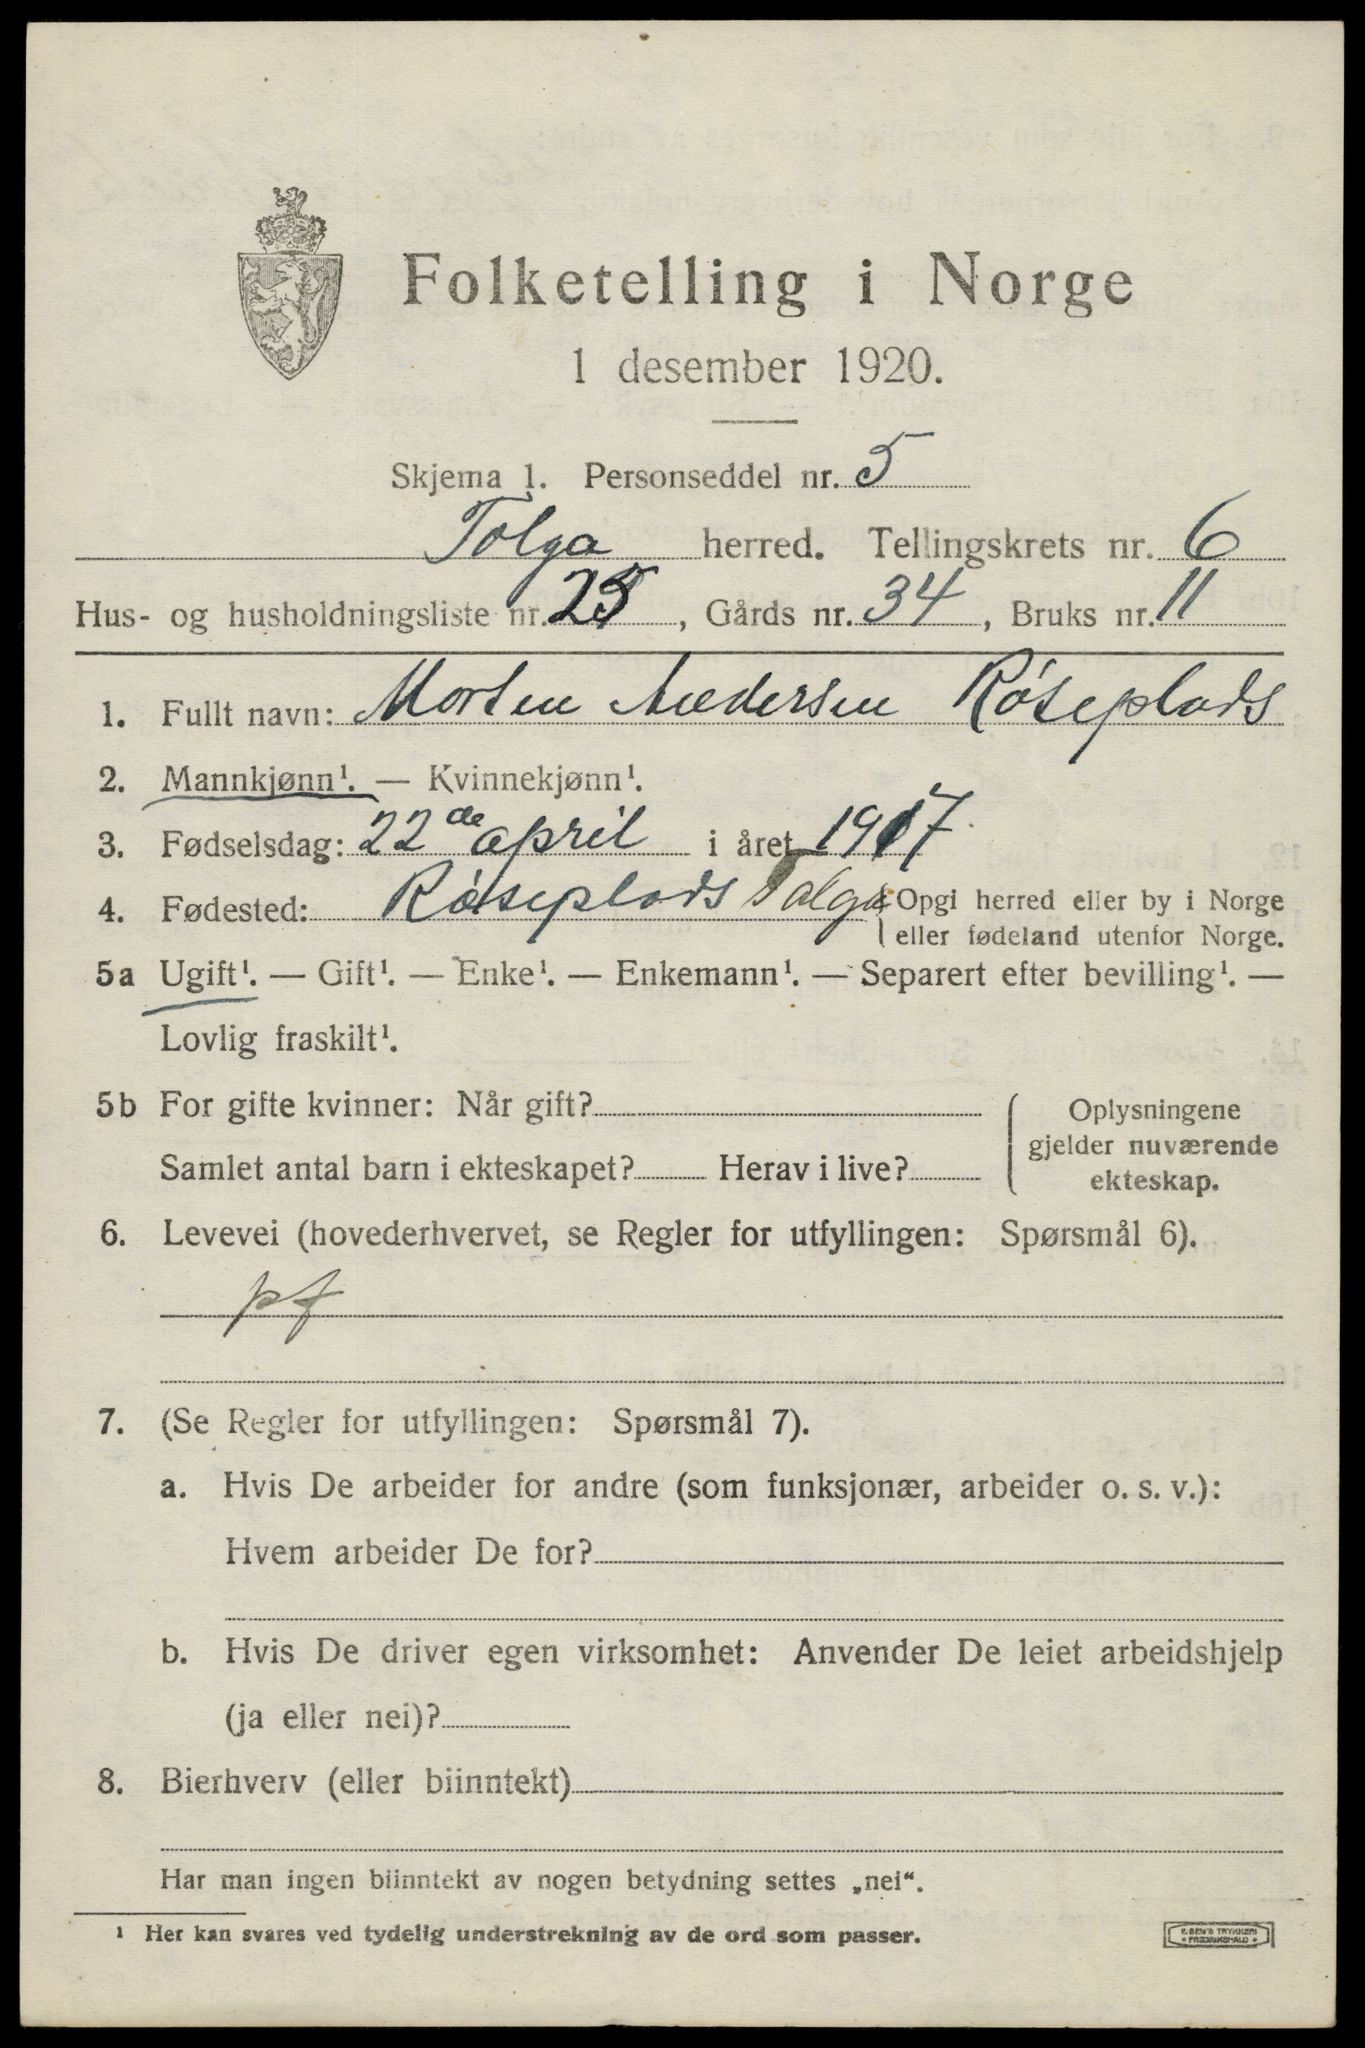 Folketelling i Norge
1 desember 1920.
Skjema 1. Personseddel nr. 5
Tolga herred. Tellingskrets nr. 6
Hus- og husholdningsliste nr. 25, Gårds nr. 34, Bruks nr. 11
1. Fullt navn: Morten Andersen Røseplads
2. Mannkjønn¹. — Kvinnekjønn¹.
3. Fødselsdag: 22de april i året 1917
4. Fødested: Røseplads Tolga (Opgi herred eller by i Norge
eller fødeland utenfor Norge.
5a Ugift¹. — Gift¹. — Enke¹. — Enkemann¹. — Separert efter bevilling¹. —
Lovlig fraskilt¹.
5b For gifte kvinner: Når gift? (Oplysningene
gjelder nuværende
Samlet antal barn i ekteskapet? Herav i live?
ekteskap.
6. Levevei (hovederhvervet, se Regler for utfyllingen: Spørsmål 6).
pf
7. (Se Regler for utfyllingen: Spørsmål 7).
a. Hvis De arbeider for andre (som funksjonær, arbeider o. s. v.):
Hvem arbeider De for?
b. Hvis De driver egen virksomhet: Anvender De leiet arbeidshjelp
(ja eller nei)?
8. Bierhverv (eller biinntekt)
Har man ingen biinntekt av nogen betydning settes „nei“.
¹ Her kan svares ved tydelig understrekning av de ord som passer.
E. SEM'S TRYKKERI
FREDRIKSHALD